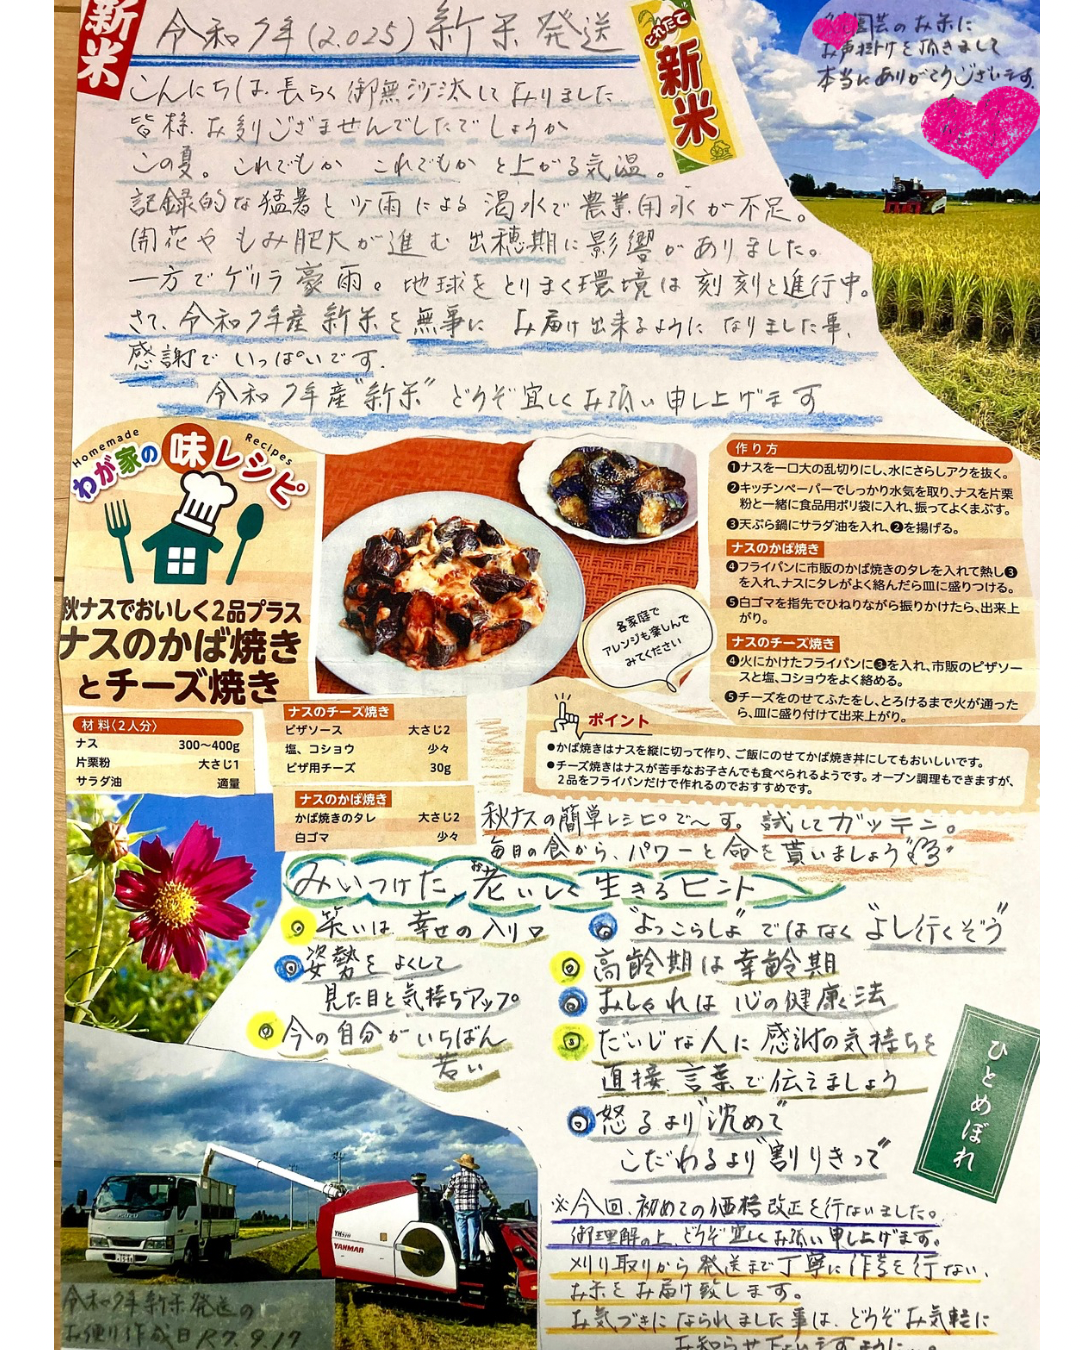 新米
令和7年(2.025)新米発送
とれたて
新米
園芸のお米に
お声掛けを頂きまして
本当にありがとうございます。
こんにちは、長らく御無沙汰しておりました
皆様、お変りございませんでしたでしょうか
この夏。これでもか これでもかと上がる気温。
記録的な猛暑と少雨による渇水で農業用水が不足。
開花やもみ肥大が進む出穂期に影響がありました。
一方でゲリラ豪雨。地球をとりまく環境は刻刻と進行中。
さて、令和7年産新米を無事にお届け出来るようになりました事、
感謝でいっぱいです。
令和7年産"新米"どうぞ宜しくお願い申し上げます
Homemade Recipes
わが家の味レシピ
秋ナスでおいしく2品プラス
ナスのかば焼き
とチーズ焼き
材料〈2人分〉
ナス 300〜400g
片栗粉 大さじ1
サラダ油 適量
ナスのチーズ焼き
ピザソース 大さじ2
塩、コショウ 少々
ピザ用チーズ 30g
ナスのかば焼き
かば焼きのタレ 大さじ2
白ゴマ 少々
各家庭で
アレンジも楽しんで
みてください
作り方
❶ナスを一口大の乱切りにし、水にさらしアクを抜く。
❷キッチンペーパーでしっかり水気を取り、ナスを片栗
粉と一緒に食品用ポリ袋に入れ、振ってよくまぶす。
❸天ぷら鍋にサラダ油を入れ、❷を揚げる。
ナスのかば焼き
❹フライパンに市販のかば焼きのタレを入れて熱し❸
を入れ、ナスにタレがよく絡んだら皿に盛りつける。
❺白ゴマを指先でひねりながら振りかけたら、出来上
がり。
ナスのチーズ焼き
❹火にかけたフライパンに❸を入れ、市販のピザソー
スと塩、コショウをよく絡める。
❺チーズをのせてふたをし、とろけるまで火が通った
ら、皿に盛り付けて出来上がり。
ポイント
●かば焼きはナスを縦に切って作り、ご飯にのせてかば焼き丼にしてもおいしいです。
●チーズ焼きはナスが苦手なお子さんでも食べられるようです。オーブン調理もできますが、
2品をフライパンだけで作れるのでおすすめです。
秋ナスの簡単レシピで〜す。試してガッテン。
毎日の食から、パワーと命を貰いましょう
みいつけた、老いしく生きるヒント
お
笑いは幸せの入り口
姿勢をよくして
見た目と気持ちアップ
今の自分がいちばん
若い
"よっこらしょ"ではなく"よし行くぞう"
高齢期は幸齢期
おしゃれは心の健康法
だいじな人に感謝の気持ちを
直接言葉で伝えましょう
怒るより"沈めて"
こだわるより"割りきって"
ひとめぼれ
※今回、初めての価格改正を行ないました。
御理解の上、どうぞ宜しくお願い申し上げます。
刈り取りから発送まで丁寧に作業を行ない、
お米をお届け致します。
お気づきになられました事は、どうぞお気軽に
お知らせ下さいますように。
YH570
YANMAR
ISUZU
令和7年新米発送の
お便り作成日R7.9.17